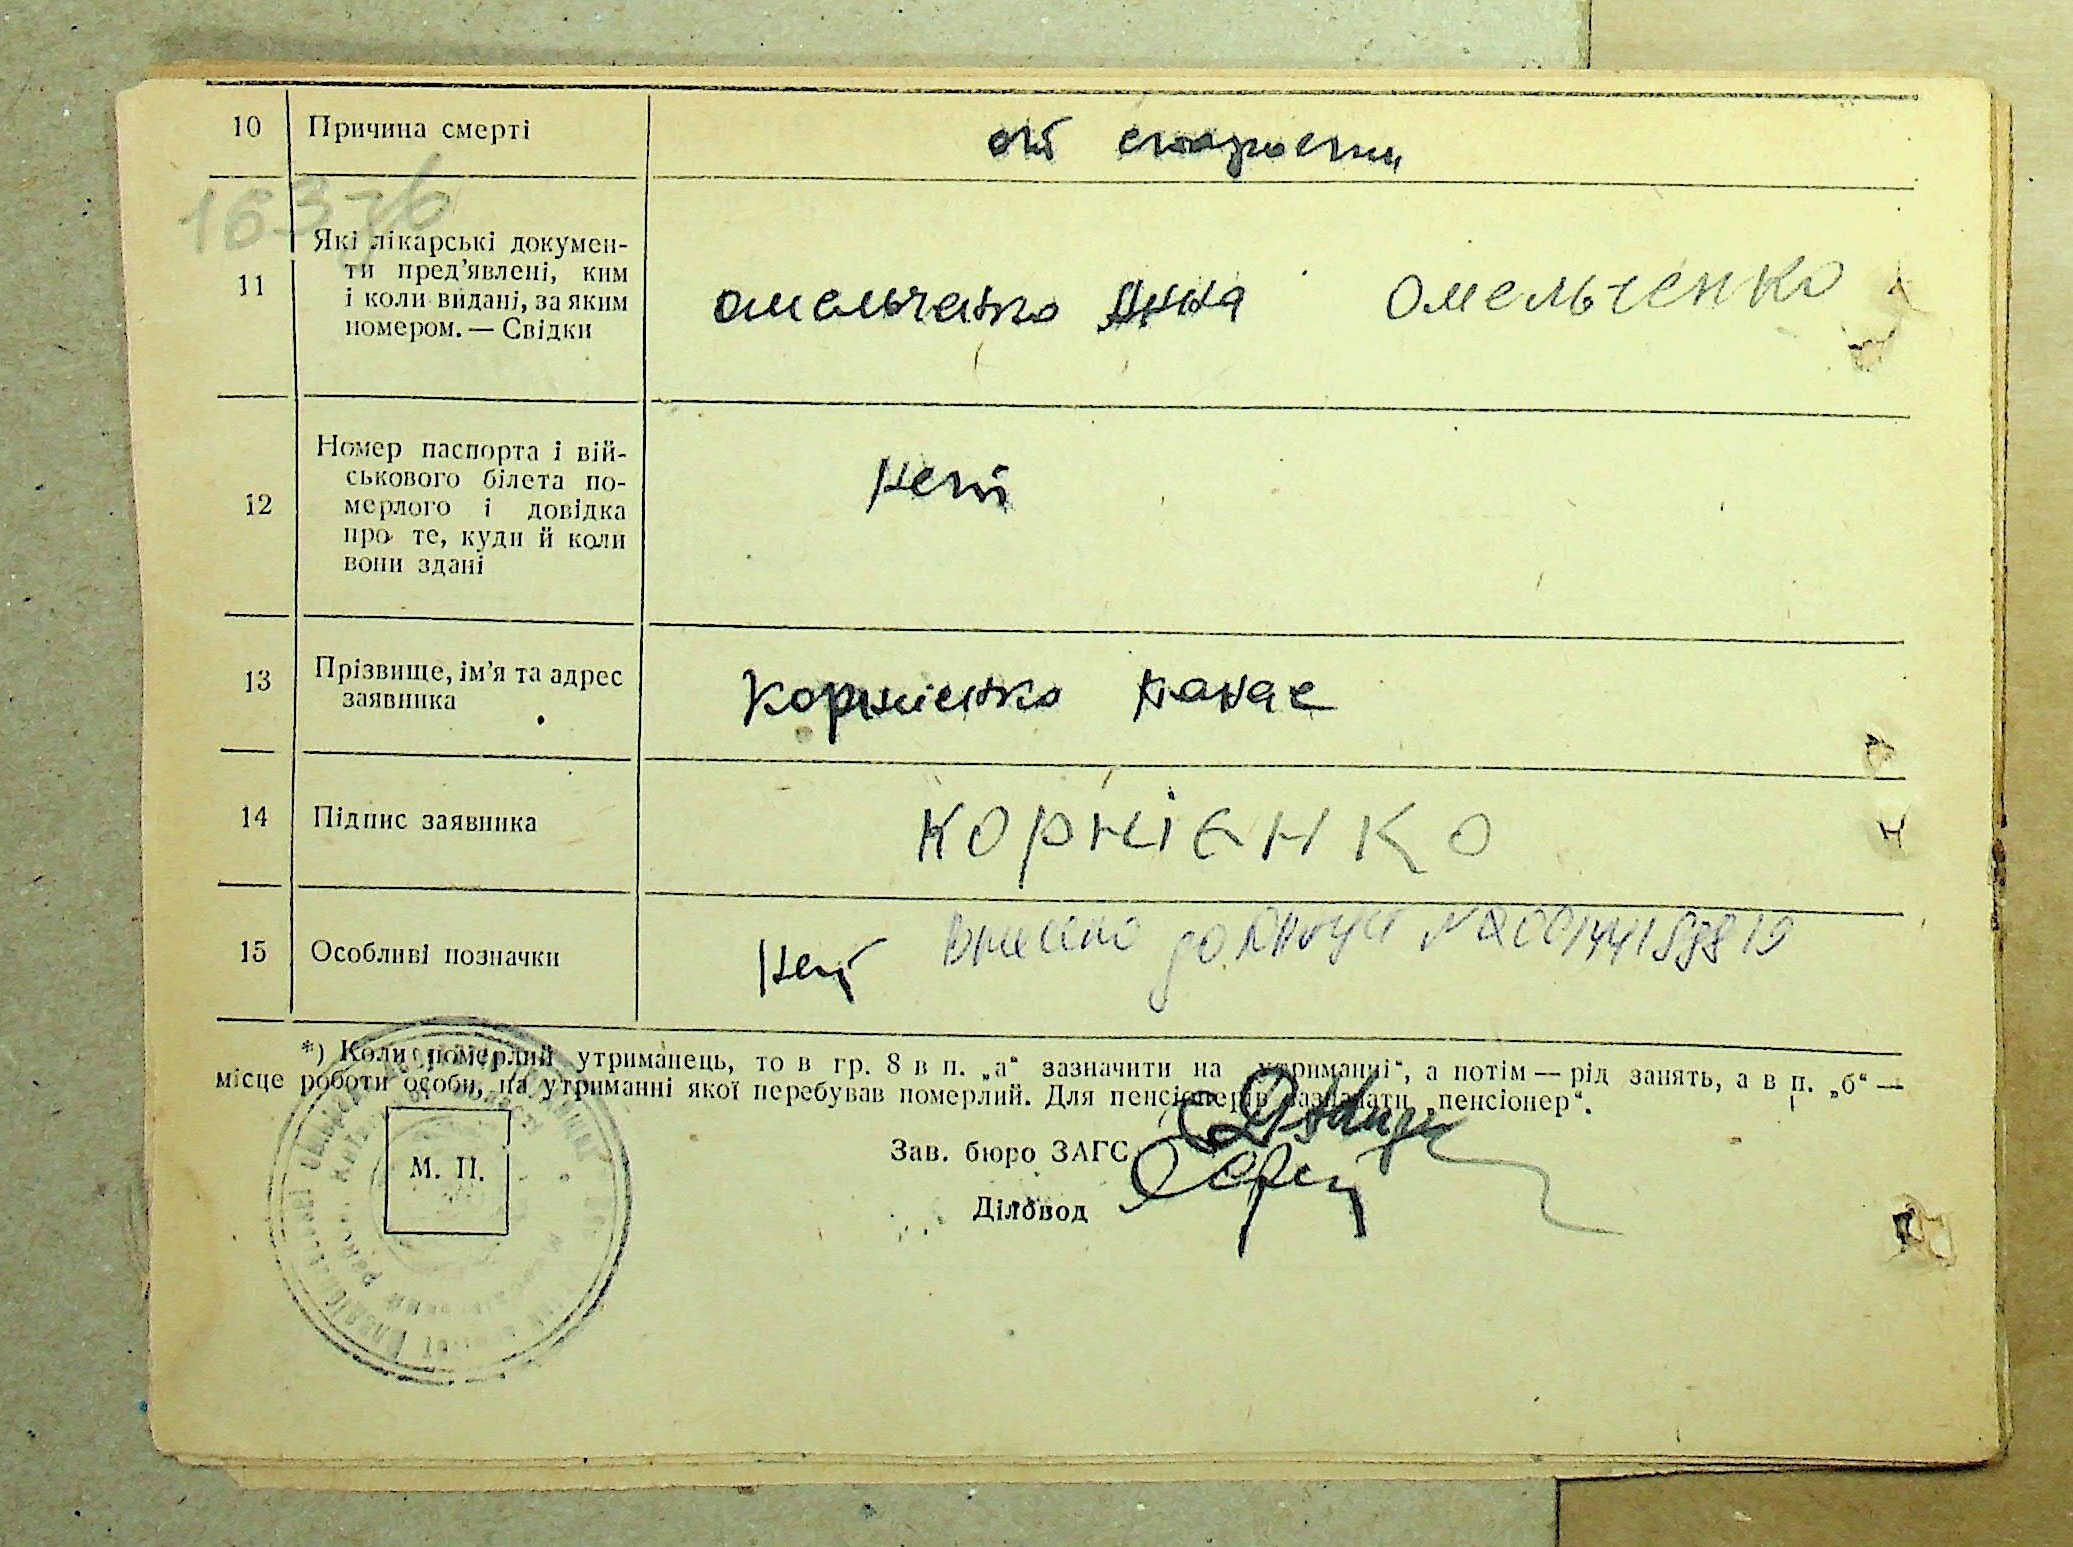 10 Причина смерті от старости
163зв
11 Які лікарські докумен-
ти пред'явлені, ким
і коли видані, за яким
номером. — Свідки
омельченко Анна Омельченко
12 Номер паспорта і вій-
ськового білета по-
мерлого і довідка
про те, куди й коли
вони здані
нет
13 Прізвище, ім'я та адрес
заявника
Корниенко Панас
14 Підпис заявника Корнієнко
15 Особливі позначки нет Внесено до
*) Коли померлий утриманець, то в гр. 8 в п. „а“ зазначити на утриманні“, а потім — рід занять, а в п. „б“ —
місце роботи особи, на утриманні якої перебував померлий. Для пенсіонерів зазначати „пенсіонер“.
М. П.
Зав. бюро ЗАГС
Діловод